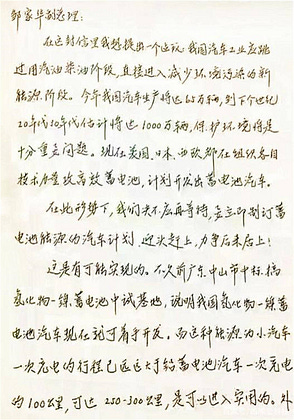 邹家华副总理：
在这封信里我想提出一个建议：我国汽车工业应跳
过用汽油柴油阶段，直接进入减少环境污染的新
能源阶段。今年我国汽车生产将达65万辆，到下个世纪
20年代30年代估计将达1000万辆，保护环境将是
十分重要问题。现在美国、日本、西欧都在组织各自
技术力量攻高效蓄电池，计划开发出蓄电池汽车。
在此形势下，我们决不应再等待，要立即制订蓄
电池能源的汽车计划，迎头赶上，力争后来居上！
这是有可能实现的。不久前广东中山市中标搞
氢化物—镍蓄电池中试基地，说明我国氢化物—镍蓄
电池汽车现在就可着手开发。而这种能源为小汽车
一次充电的行程已远远大于铅蓄电池汽车一次充电
的100公里，可达250-300公里，是可以进入实用的。外